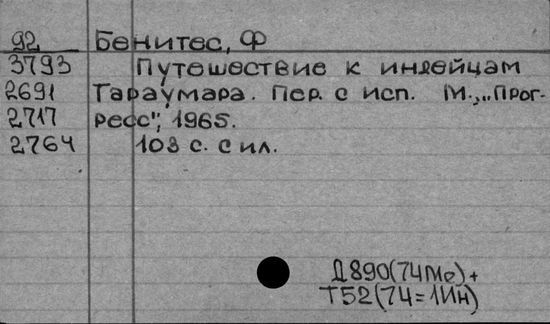 92 Бенитес, Ф
3793 Путешествие к индейцам
2691 Тараумара. Пер. с исп. М., „Прог-
2717 ресс", 1965.
2764 103 с. с ил.
Д890(74Ме)+
Т52(74=1Ин)